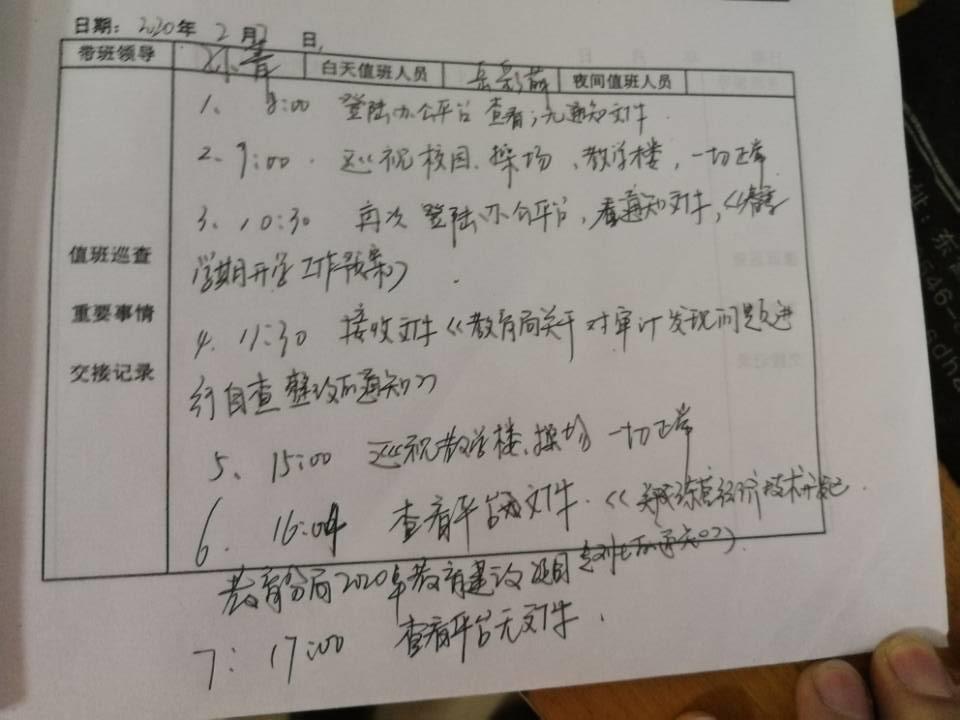 日期：2020年 2月2日
带班领导 白天值班人员 岳彩萍 夜间值班人员
1、8:00 登陆办公平台查看，无通知文件.
2、9:00. 巡视校园、操场、教学楼，一切正常
3、10:30 再次登陆办公平台，看通知文件，《春季
学期开学工作预案》.
值班巡查
重要事情
4、11:30 接收文件《教育局关于对审计发现问题进
交接记录
行自查整改的通知》
5、15:00 巡视教学楼、操场 一切正常
6、16:00 查看平台文件.《关于东营经济技术开发区
教育分局2020年教育建设项目的通知》.
7: 17:00 查看平台无文件.